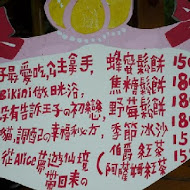 子最愛吃公主拿手，
Bikini做日光浴，
沒有告訴王子の初戀，
貓調配の幸福秘方，
從Alice夢遊仙境
帶回來の
蜂蜜鬆餅 150
焦糖鬆餅 180
野莓鬆餅 180
季節冰沙 150
伯爵紅茶
(阿薩姆紅茶